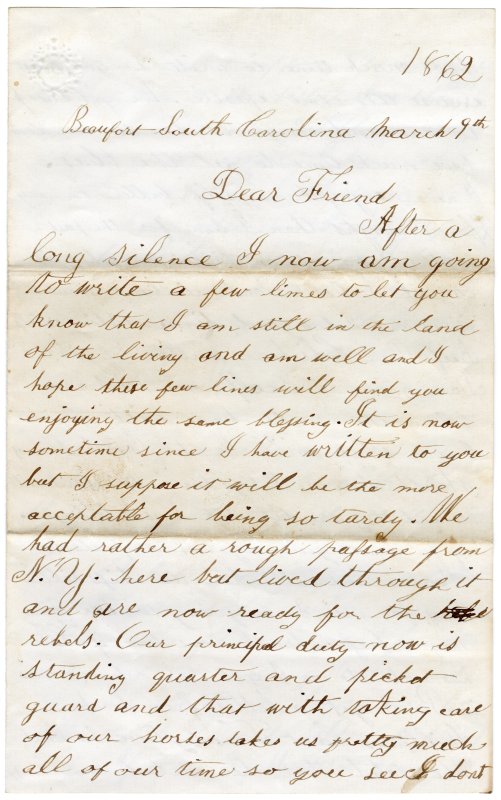 1862
Beaufort South Carolina March 9th
Dear Friend
After a
long silence I now am going
to write a few limes to let you
know that I am still in the land
of the living and am well and I
hope these few lines will find you
enjoying the same blessing. It is now
sometime since I have written to you
but I suppose it will be the more
acceptable for being so tardy. We
had rather a rough passage from
N.Y. here but lived through it
and are now ready for the
rebels. Our principl duty now is
standing quarter and picket
guard and that with taking care
of our horses takes us pretty much
all of our time so you see I dont